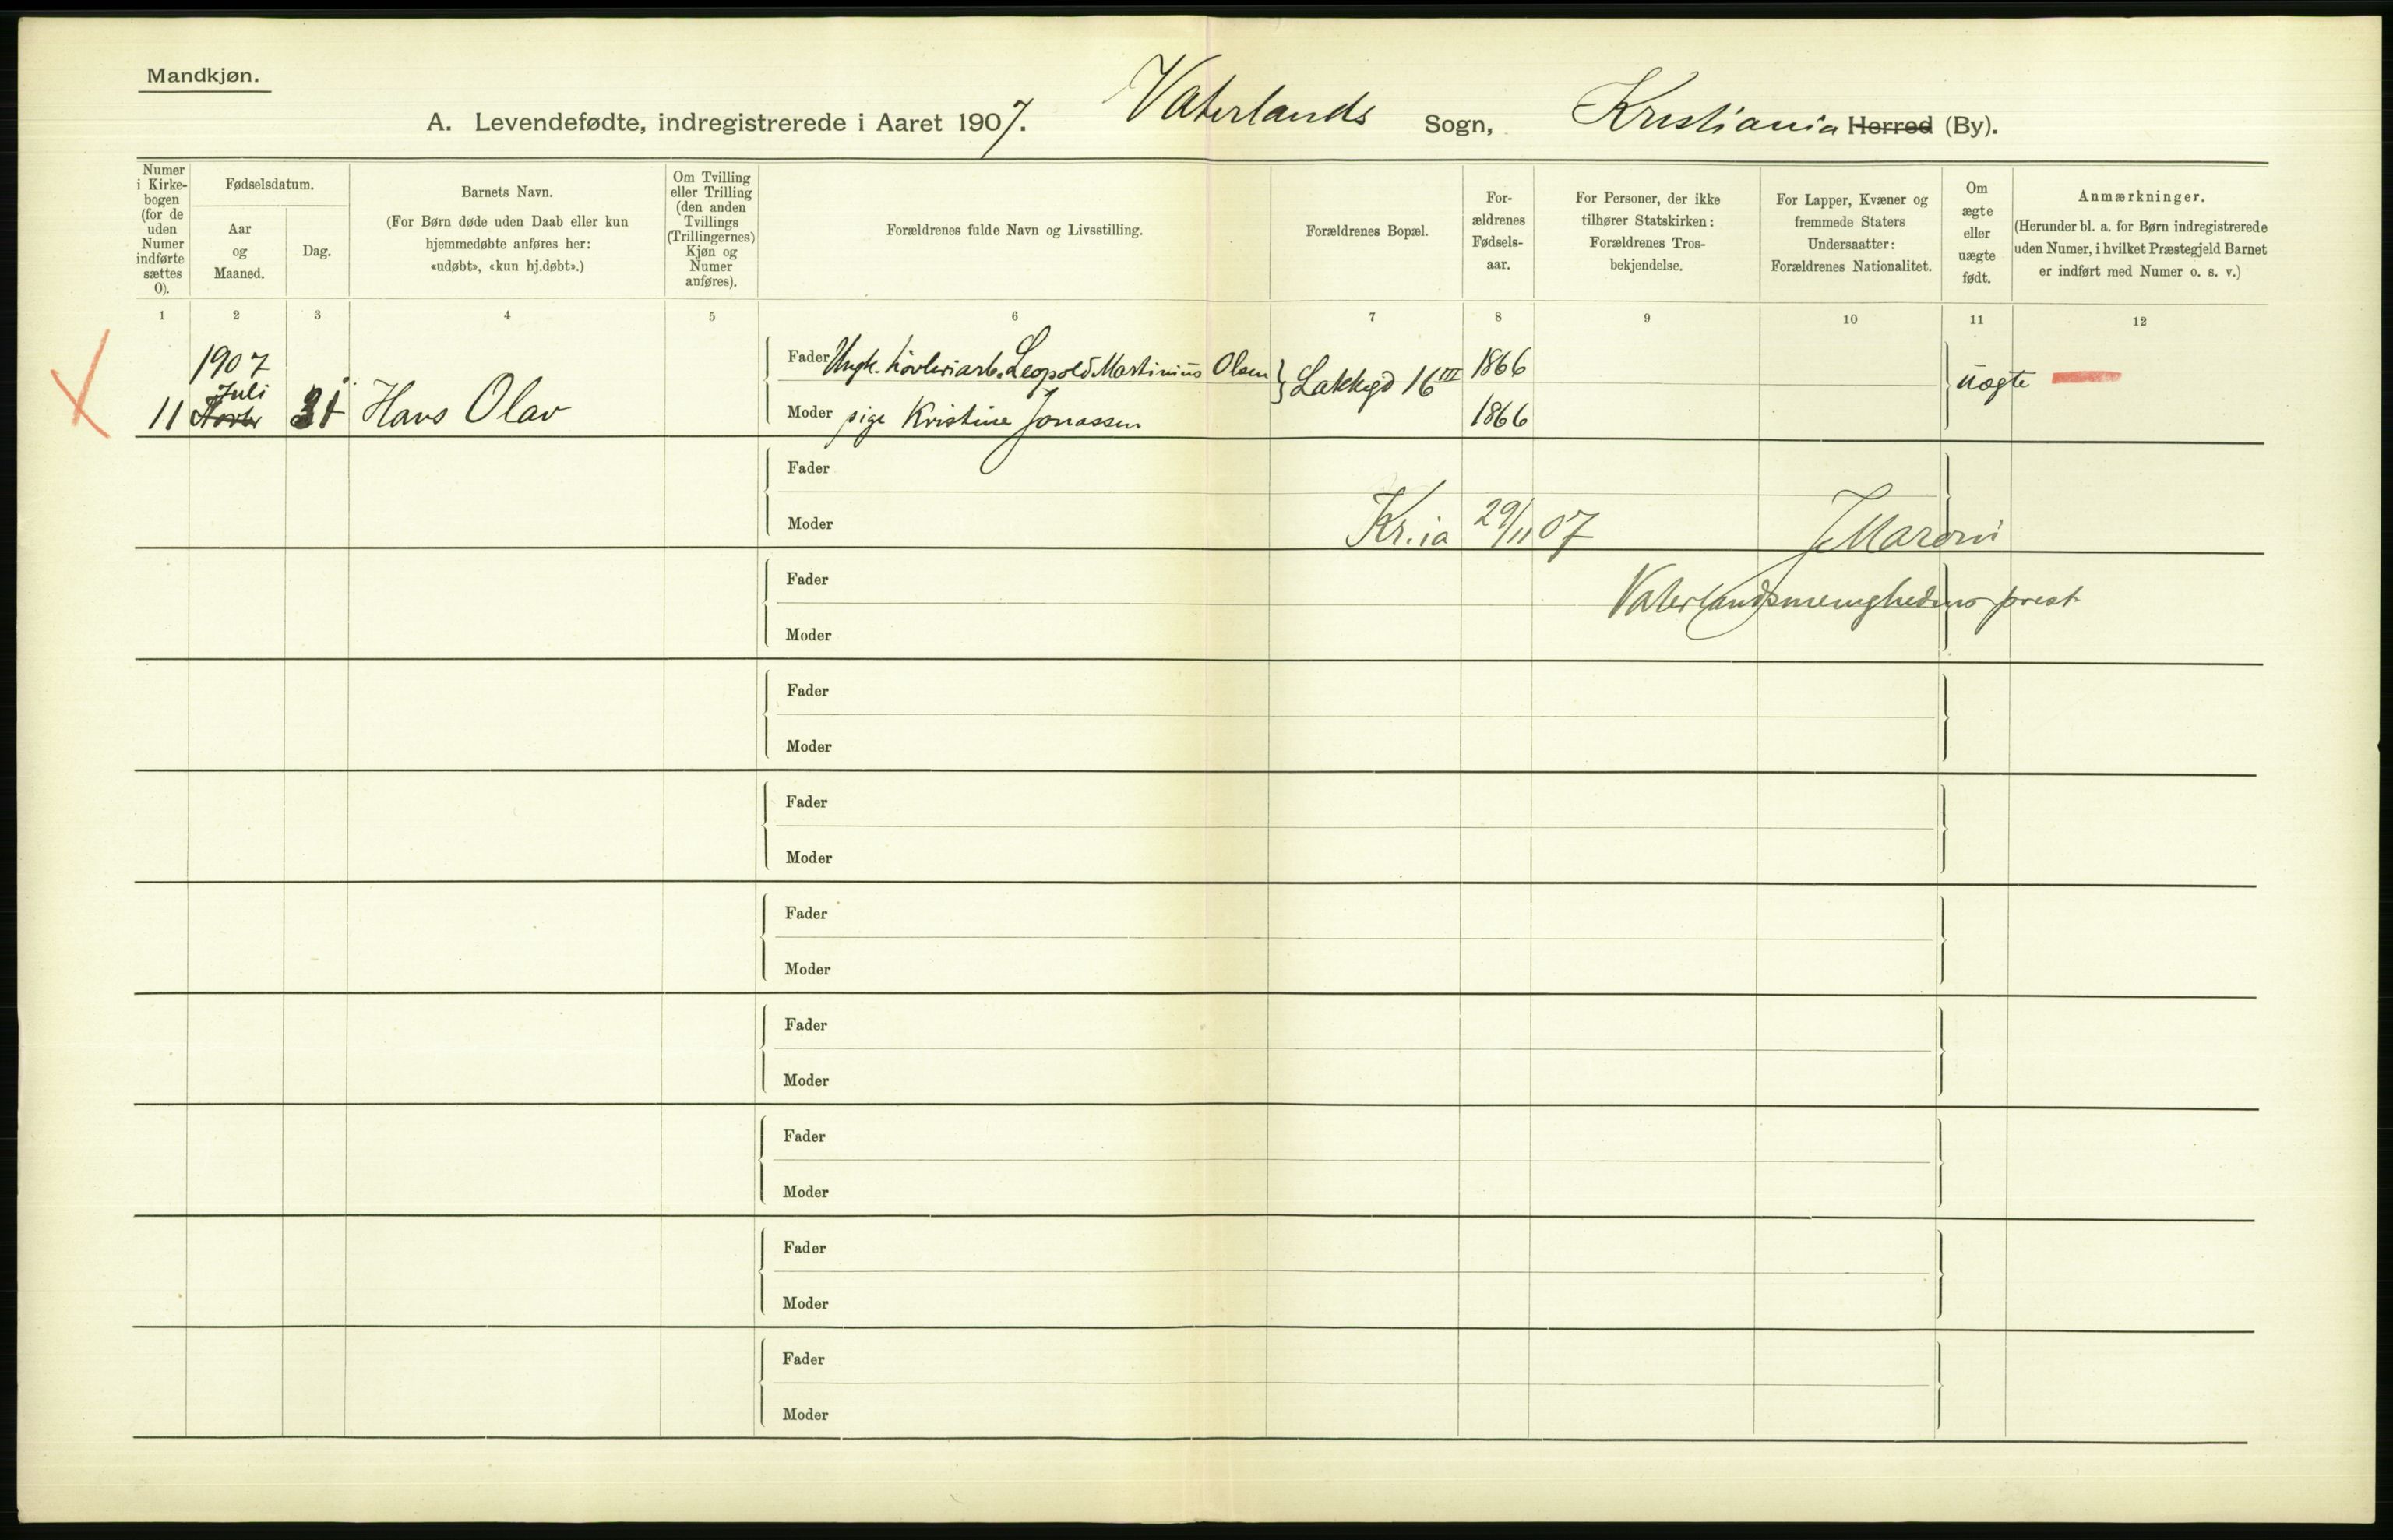 Mandkjøn.
A. Levendefødte, indregistrerede i Aaret 1907. Vaterlands Sogn, Kristiania Herred (By).
Numer i Kirke-bogen (for de uden Numer indførte sættes 0).
Fødselsdatum.
Aar og Maaned.
Dag.
Barnets Navn.
(For Børn døde uden Daab eller kun hjemmedøbte anføres her: «udøbt», «kun hj.døbt».)
Om Tvilling eller Trilling (den anden Tvillings (Trillingernes) Kjøn og Numer anføres).
Forældrenes fulde Navn og Livsstilling.
Forældrenes Bopæl.
For-ældrenes Fødsels-aar.
For Personer, der ikke tilhører Statskirken: Forældrenes Tros-bekjendelse.
For Lapper, Kvæner og fremmede Staters Undersaatter: Forældrenes Nationalitet.
Om ægte eller uægte født.
Anmærkninger.
(Herunder bl. a. for Børn indregistrerede uden Numer, i hvilket Præstegjeld Barnet er indført med Numer o. s. v.)
1 2 3 4 5 6 7 8 9 10 11 12
1907
Juli
11 31 Hans Olav
Fader Ungk. høvleriarb. Leopold Martinius Olsen Lakkegd 16 III 1866 uægte
Moder pige Kristine Jonassen 1866
Fader
Moder Kr.ia 29/11 07 J Maroni
Fader Vaterlandsmenighedens prest
Moder
Fader
Moder
Fader
Moder
Fader
Moder
Fader
Moder
Fader
Moder
Fader
Moder
Fader
Moder